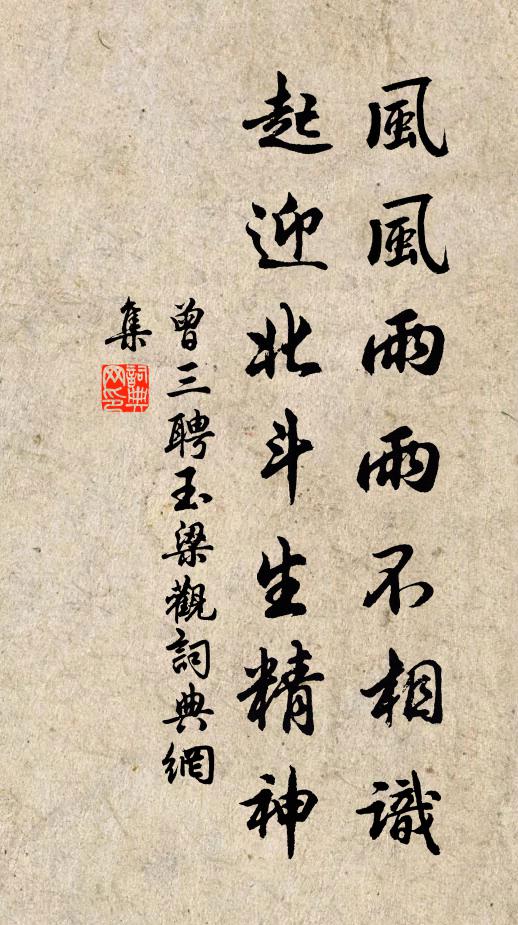 風風雨雨不相識
起迎北斗生精神
曾三聘玉梁觀詞典網
集
詞典
网印